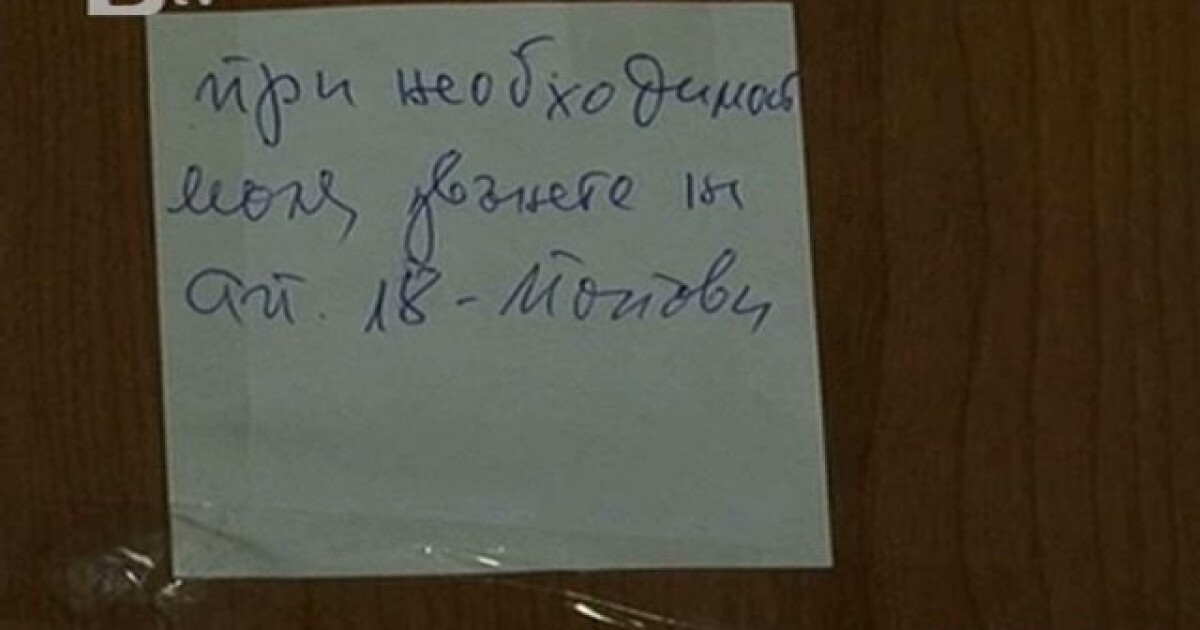 при необходимост
моля, звънете на
ап. 18 - Попови